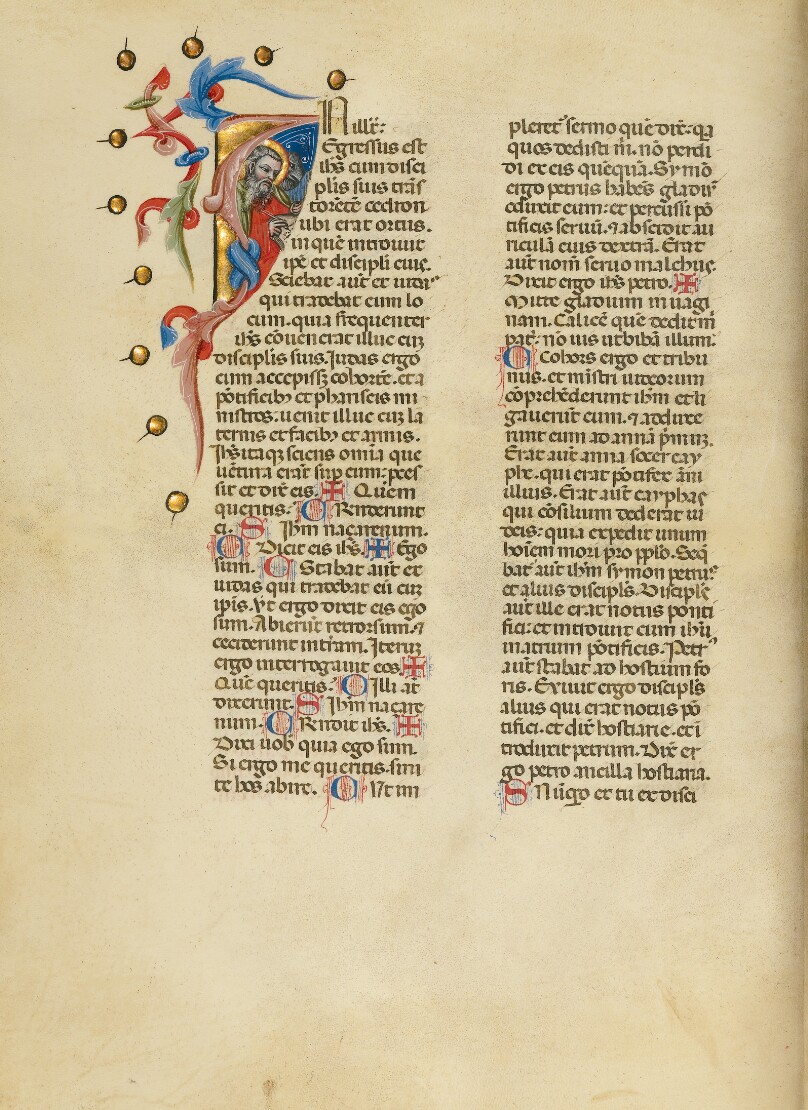 N ill' t'.
Egressus est
ihs cum disci
plis suis trās
torētē cedron
ubi erat ortus.
in quē introiuit
ip̄e et discipli eiꝰ.
Sciebat aut et iudas
qui tradebat eum lo
cum. quia frequenter
ihs cōuenerat illuc cū
disciplis suis. Iudas ergo
cum accepiss; cohortē. et a
pōtificibꝫ et phariseis mi
nistros. uenit illuc cū la
ternis et facibꝫ et armis.
Ihs itaqꝫ sciens omīa que
uētura erāt sup eum: p̄ces
sit et dix̄ eis. ✠ Quem
queritis. C Rn̄derunt
ei. S Ihm naçarenum.
C Dicit eis ihs. ✠ Ego
sum. C Stabat aut et
iudas qui tradebat eū cū
ip̄is. Vt ergo dixit eis ego
sum. Abierūt retrorsum. ⁊
ceciderunt in t̄ram. Iterum
ergo interrogauit eos. ✠
Quē queritis. C Illi at
dixerunt. S Ihm naçare
num. C Rn̄dit ihs. ✠
Dixi uob quia ego sum.
Si ergo me queritis. sini
te hos abire. C Vt im
pleret sermo quē dix̄. qa
quos dedisti m̄. nō perdi
di ex eis quēquā. Symō
ergo petrus habēs gladiū
eduxit eum: et percussit pō
tificis seruū. ⁊ abscidit au
riculā eius dextrā. Erat
aut nom̄ seruo malchus.
Dixit ergo ihs petro. ✠
Mitte gladium in uagi
nam. Calicē quē dedit m̄
pat̄. nō uis ut bibā illum.
C Cohors ergo et tribu
nus. et mīstri iudeorum
cōprehēderunt ihm et li
gauerūt eum. ⁊ adduxe
runt eum ad annā p̄mum.
Erat aut anna socer cay
phe. qui erat pōtifex āni
illius. Erat aut cayphas
qui cōsilium dederat iu
deis: quia expedit unum
hoīem mori pro pplo. Seq̄
bat̄ aut ihm symon petrus
et alius disciplꝰ. Disciplꝰ
aut ille erat notus ponti
fici: et introiuit cum ihū
in atrium pōtificis. Petrꝰ
aut stabat ad hostium fo
ris. Exiuit ergo disciplꝰ
alius qui erat notus pō
tifici. et dix̄ hostiarie. et ī
troduxit petrum. Dix̄ er
go petro ancilla hostiaria.
S Nūqd et tu ex disci